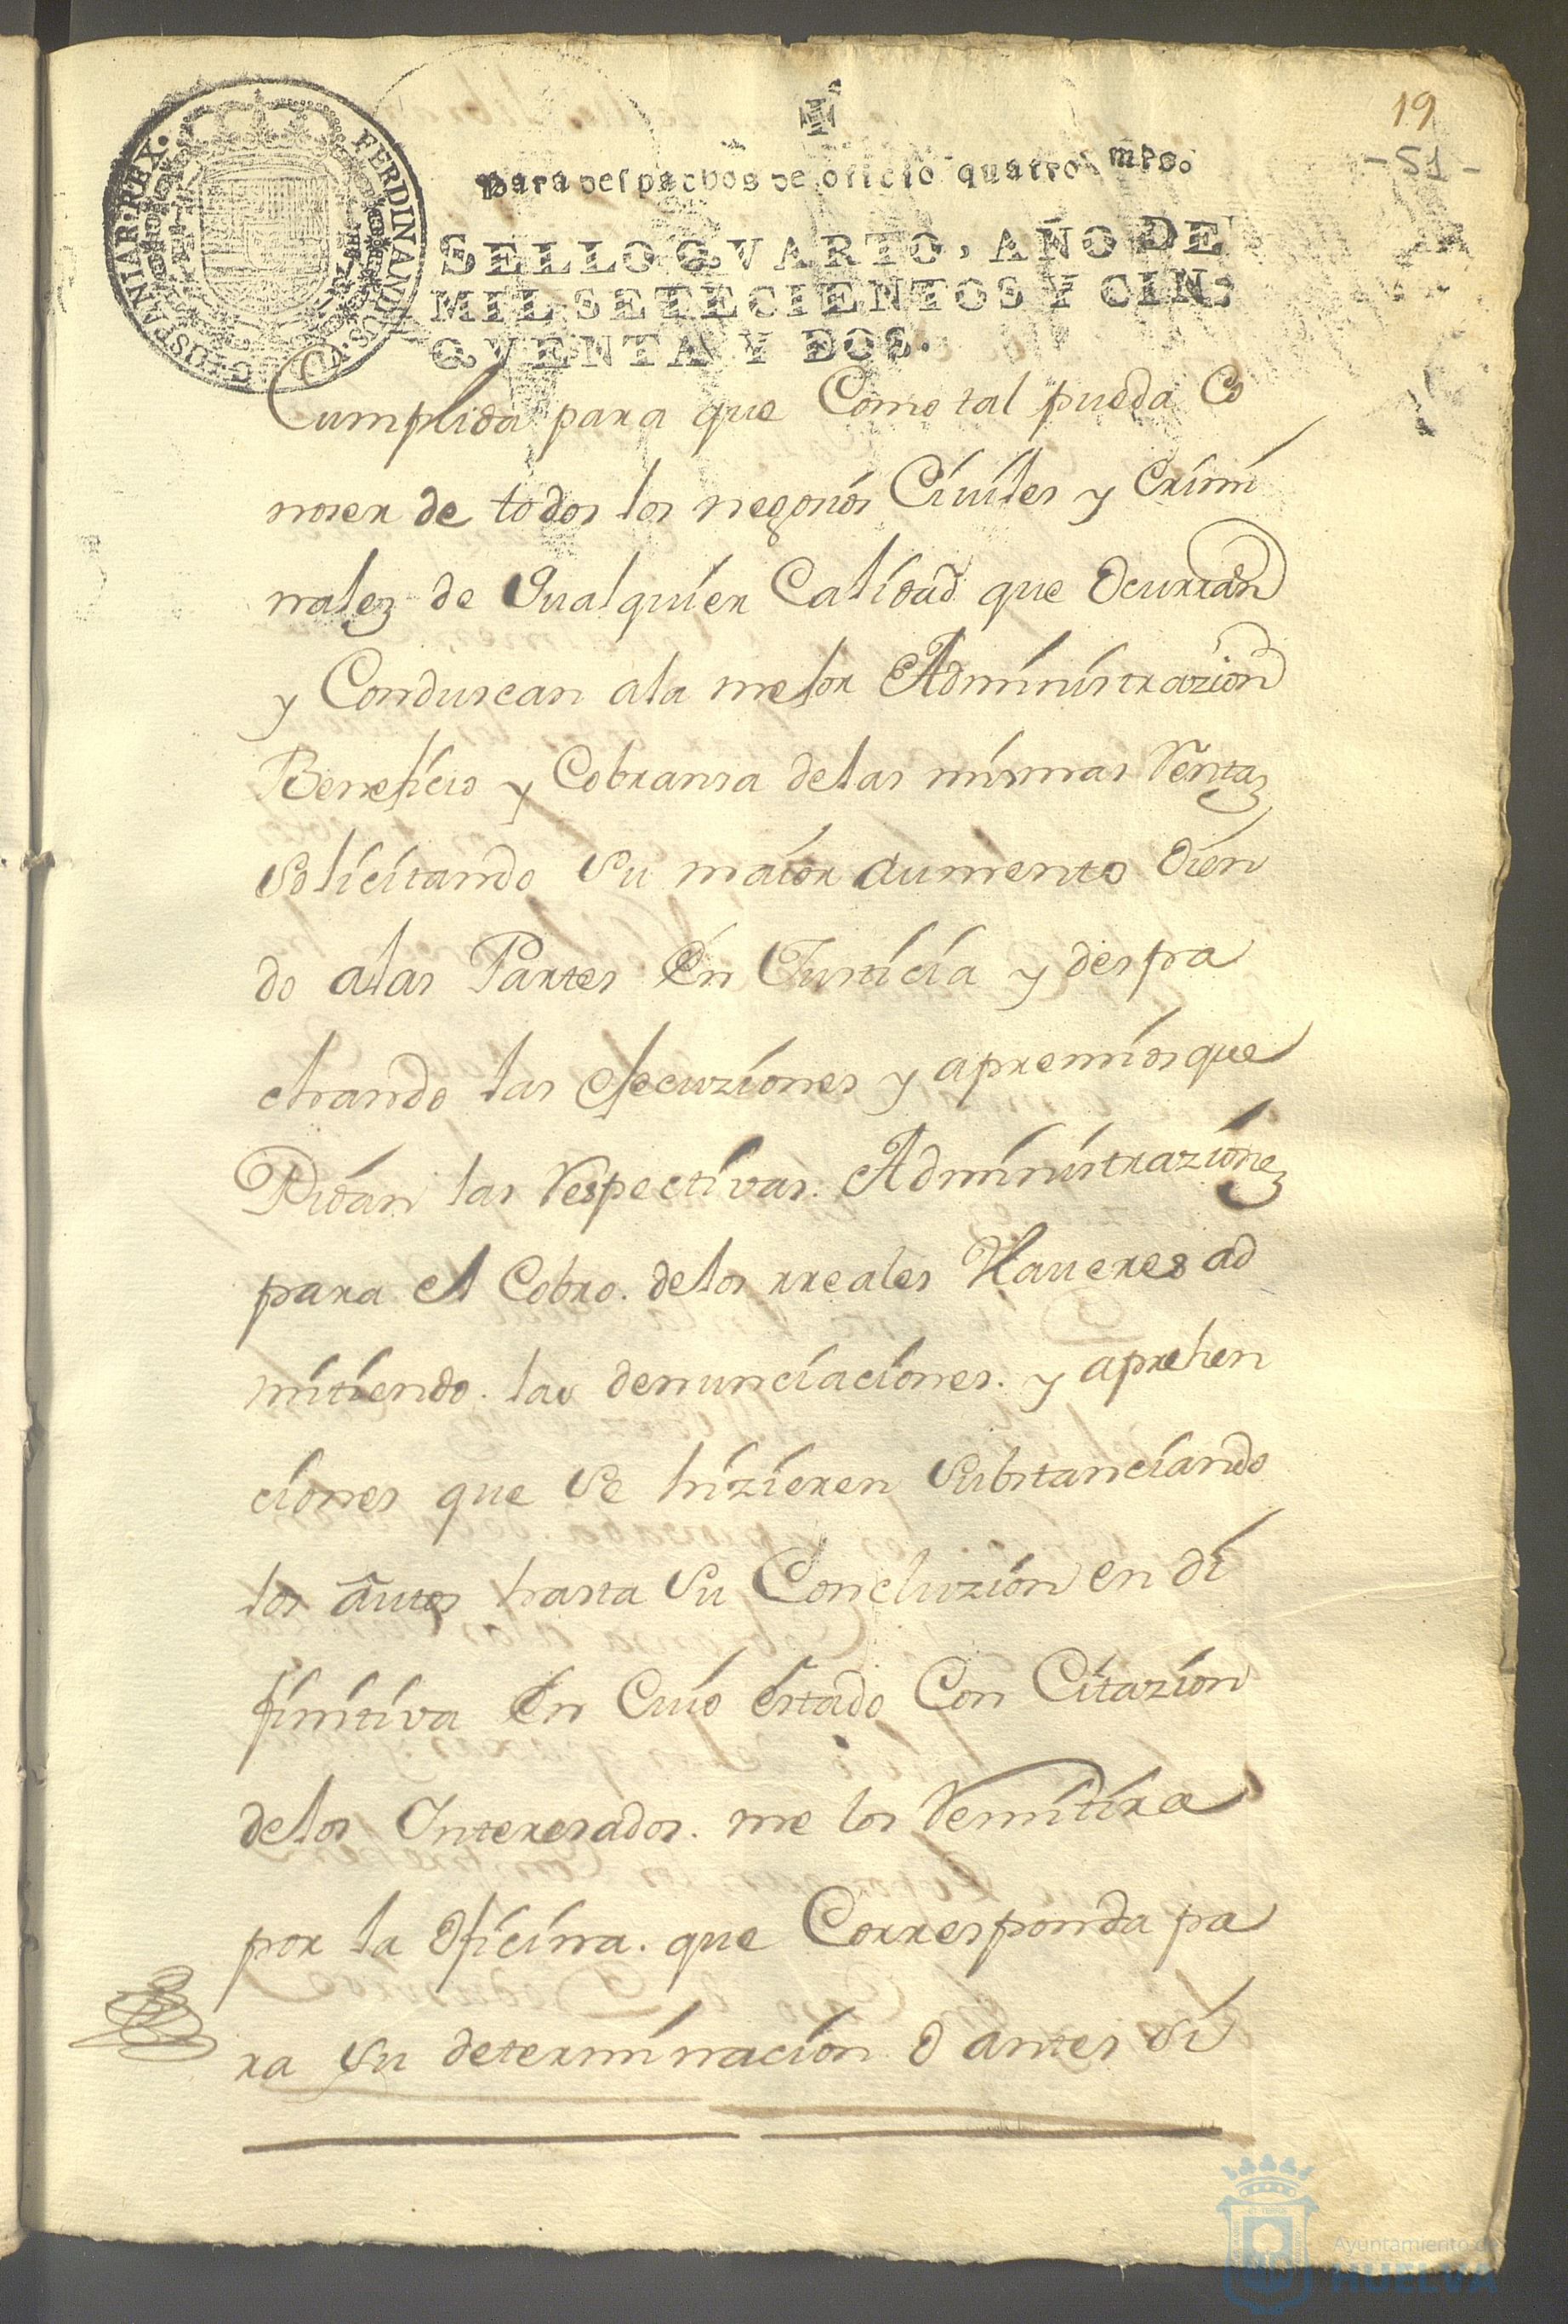 19
- 51 -
FERDINANDVS·VI·D·G·HISPANIAR·REX·
para despachos de oficio quatro mrs.
SELLO QVARTO, AÑO DE
MIL SETECIENTOS Y CIN-
QVENTA Y DOS.
Cumplida para que Como tal pueda Co
noser de todos los negosios Ciuiles y Crimi
nales de Qualquier Calidad que Ocurran
y Conduscan ala mejor Administrazion
Beneficio y Cobransa delas mismas Rentas
Solicitando Su maior aumento Oien
do alas Partes En Justicia y despa
chando las ejecuziones y apremios que
Pidan las Respectivas Administraziones
para el Cobro. delos rreales Haueres ad
mitiendo. las denunciaciones. y aprehen
ciones que Se hizieren Substanciando
los autos hasta Su Concluzion en di
finitiva En Cuio estado Con Citazion
delos Interesados. me los Remitira
por la Oficina. que Corresponda pa
ra Su determinacion O antes Si
Ayuntamiento de
HUELVA